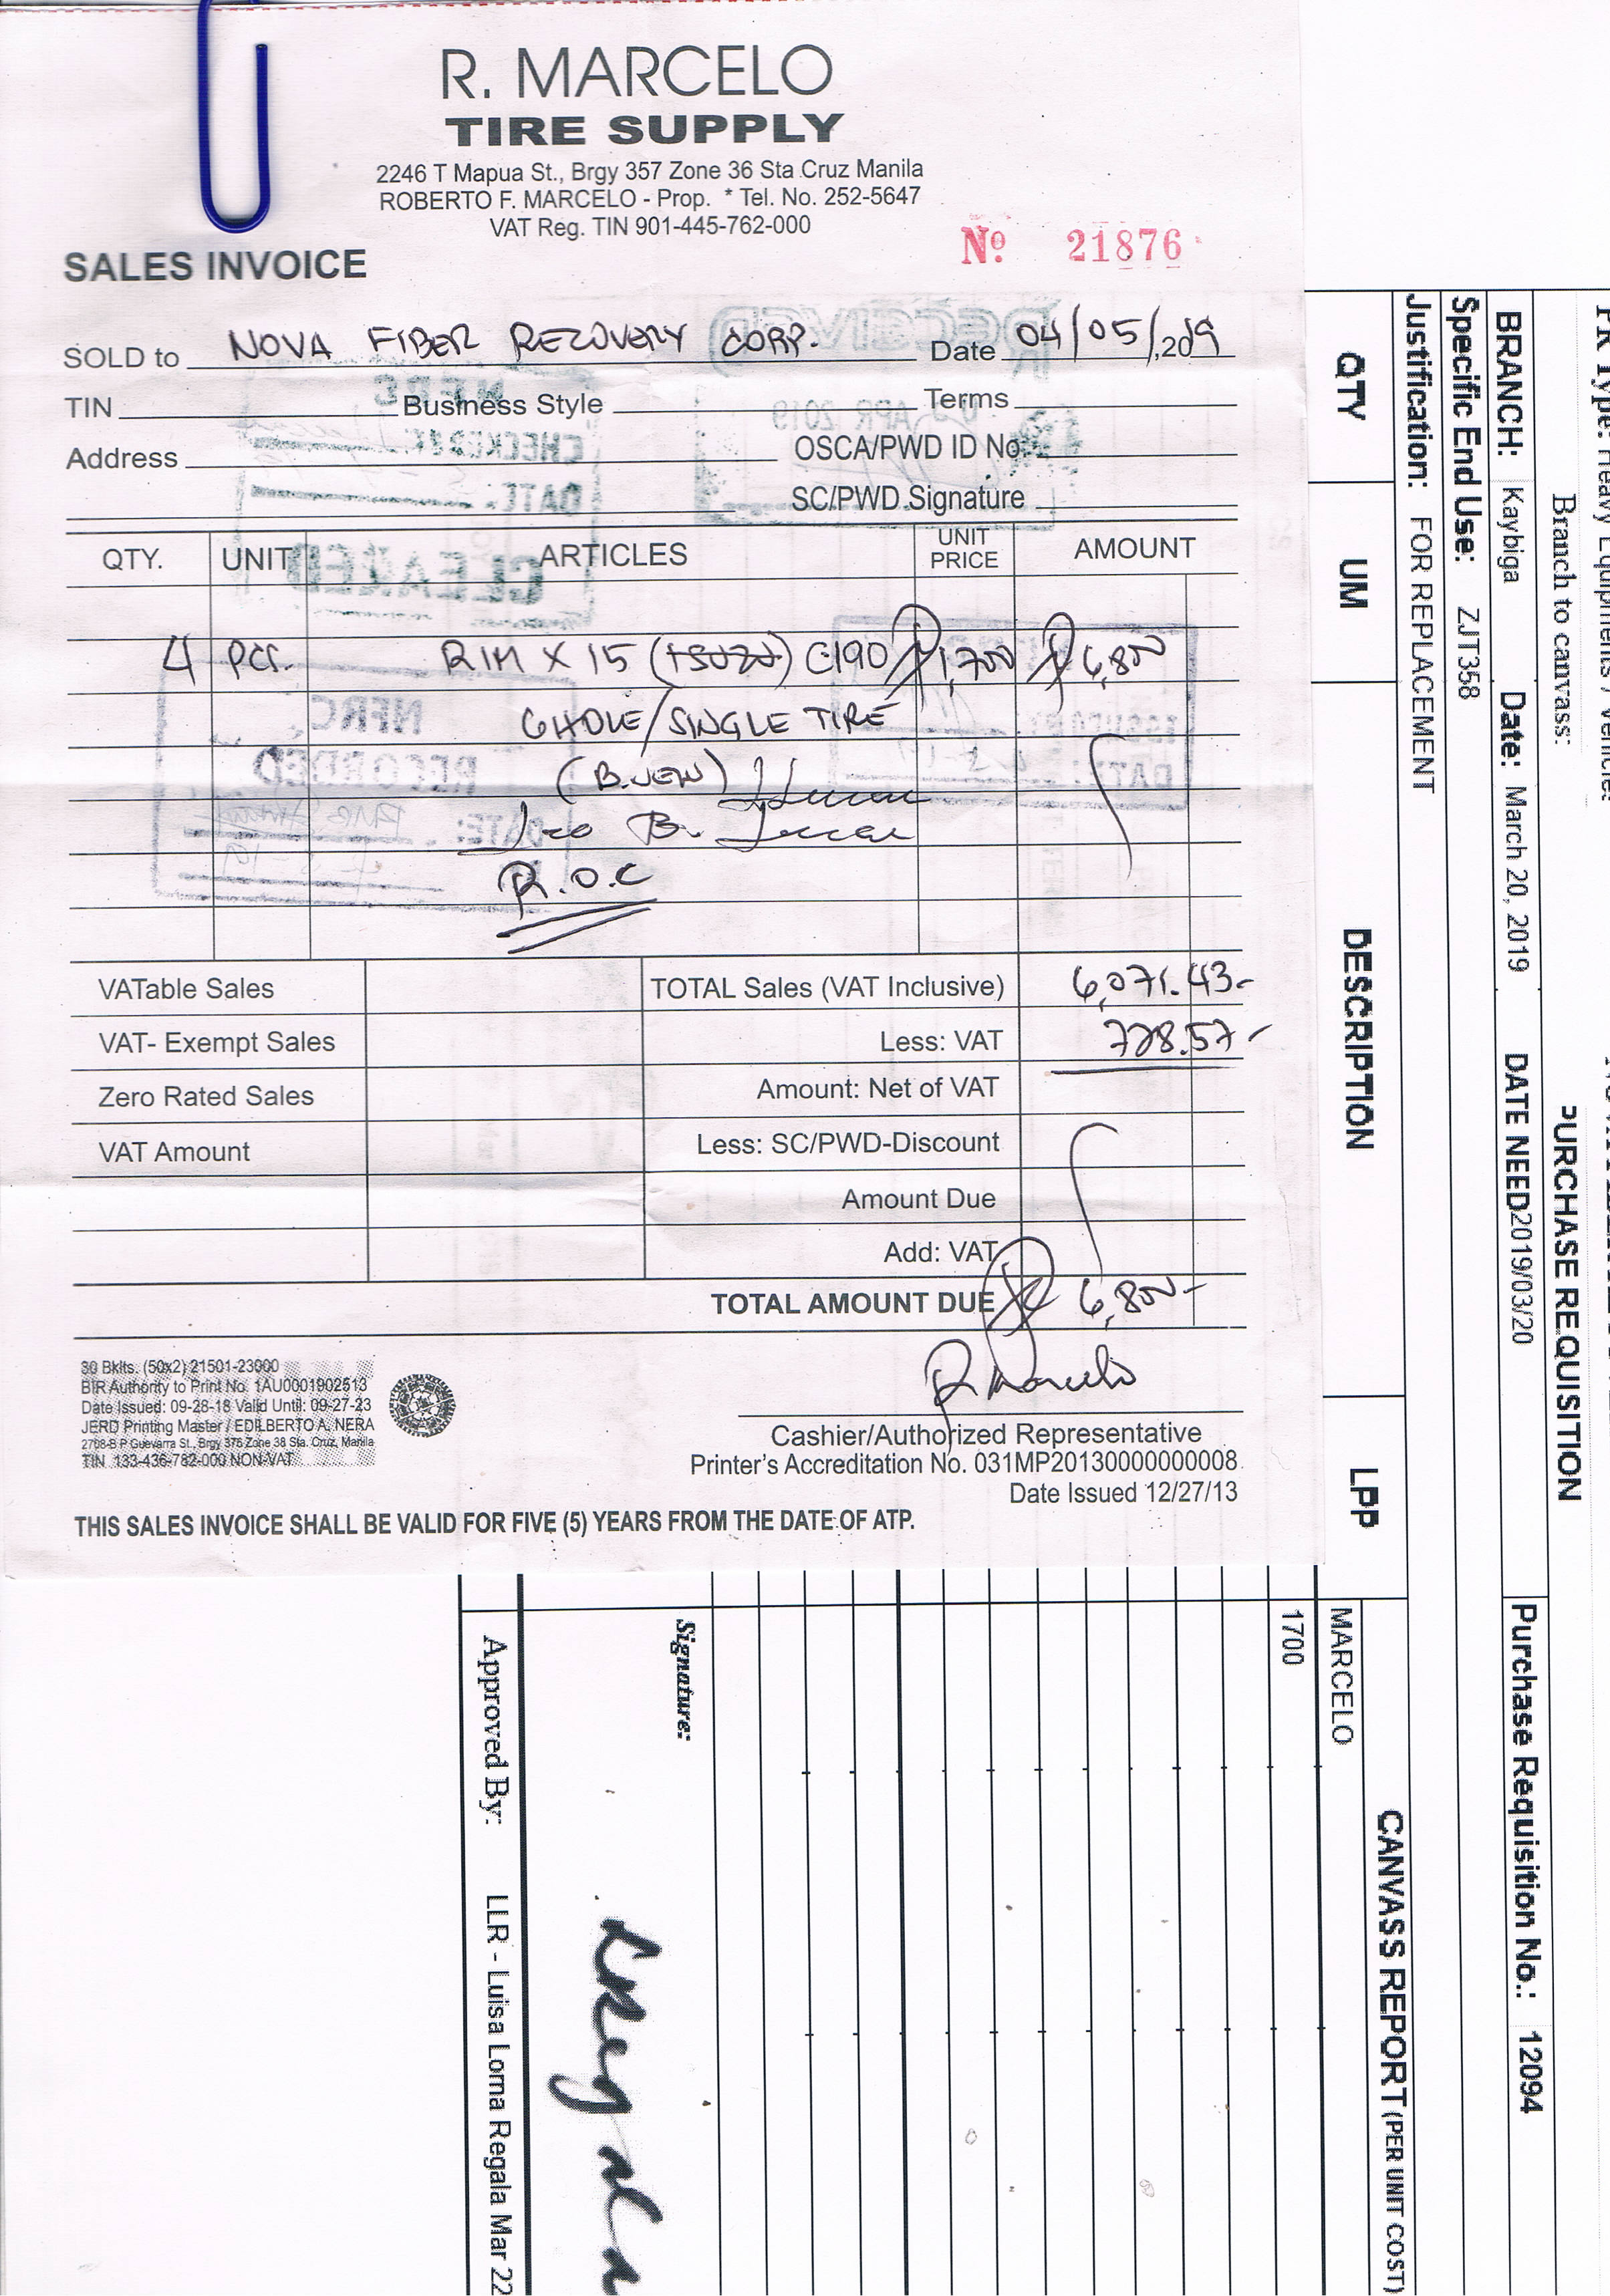 R. MARCELO
TIRE SUPPLY
2246 T Mapua St., Brgy 357 Zone 36 Sta Cruz Manila
ROBERTO F. MARCELO - Prop. * Tel. No. 252-5647
VAT Reg. TIN 901-445-762-000
SALES INVOICE
Nº 21876
SOLD to NOVA FIBER RECOVERY CORP. Date 04/05/,2019
TIN Business Style Terms
Address OSCA/PWD ID No.
SC/PWD Signature
QTY. UNIT ARTICLES UNIT PRICE AMOUNT
4 pcs. RIM X 15 (ISUZU) C190 ₱1,700 ₱6,800
6HOLE/SINGLE TIRE
(B.NEW)
R.O.C
VATable Sales TOTAL Sales (VAT Inclusive) 6,071.43-
VAT- Exempt Sales Less: VAT 728.57-
Zero Rated Sales Amount: Net of VAT
VAT Amount Less: SC/PWD-Discount
Amount Due
Add: VAT
TOTAL AMOUNT DUE ₱ 6,800-
R Marcelo
30 Bklts. (50x2) 21501-23000
BIR Authority to Print No. 1AU0001902513
Date Issued: 09-28-18 Valid Until: 09-27-23
JERD Printing Master / EDILBERTO A. NERA
2708-B P Guevarra St., Brgy 375 Zone 38 Sta. Cruz, Manila
TIN 133-436-782-000 NON-VAT
Cashier/Authorized Representative
Printer's Accreditation No. 031MP20130000000008
Date Issued 12/27/13
THIS SALES INVOICE SHALL BE VALID FOR FIVE (5) YEARS FROM THE DATE OF ATP.
PR Type: Heavy Equipments / Vehicle
Branch to canvass:
PURCHASE REQUISITION
BRANCH: Kaybiga Date: March 20, 2019 DATE NEED 2019/03/20 Purchase Requisition No.: 12094
Specific End Use: ZJT358
Justification: FOR REPLACEMENT
CANVASS REPORT (PER UNIT COST)
QTY UM DESCRIPTION LPP MARCELO
1700
Signature:
Approved By: LLR - Luisa Lorna Regala Mar 22